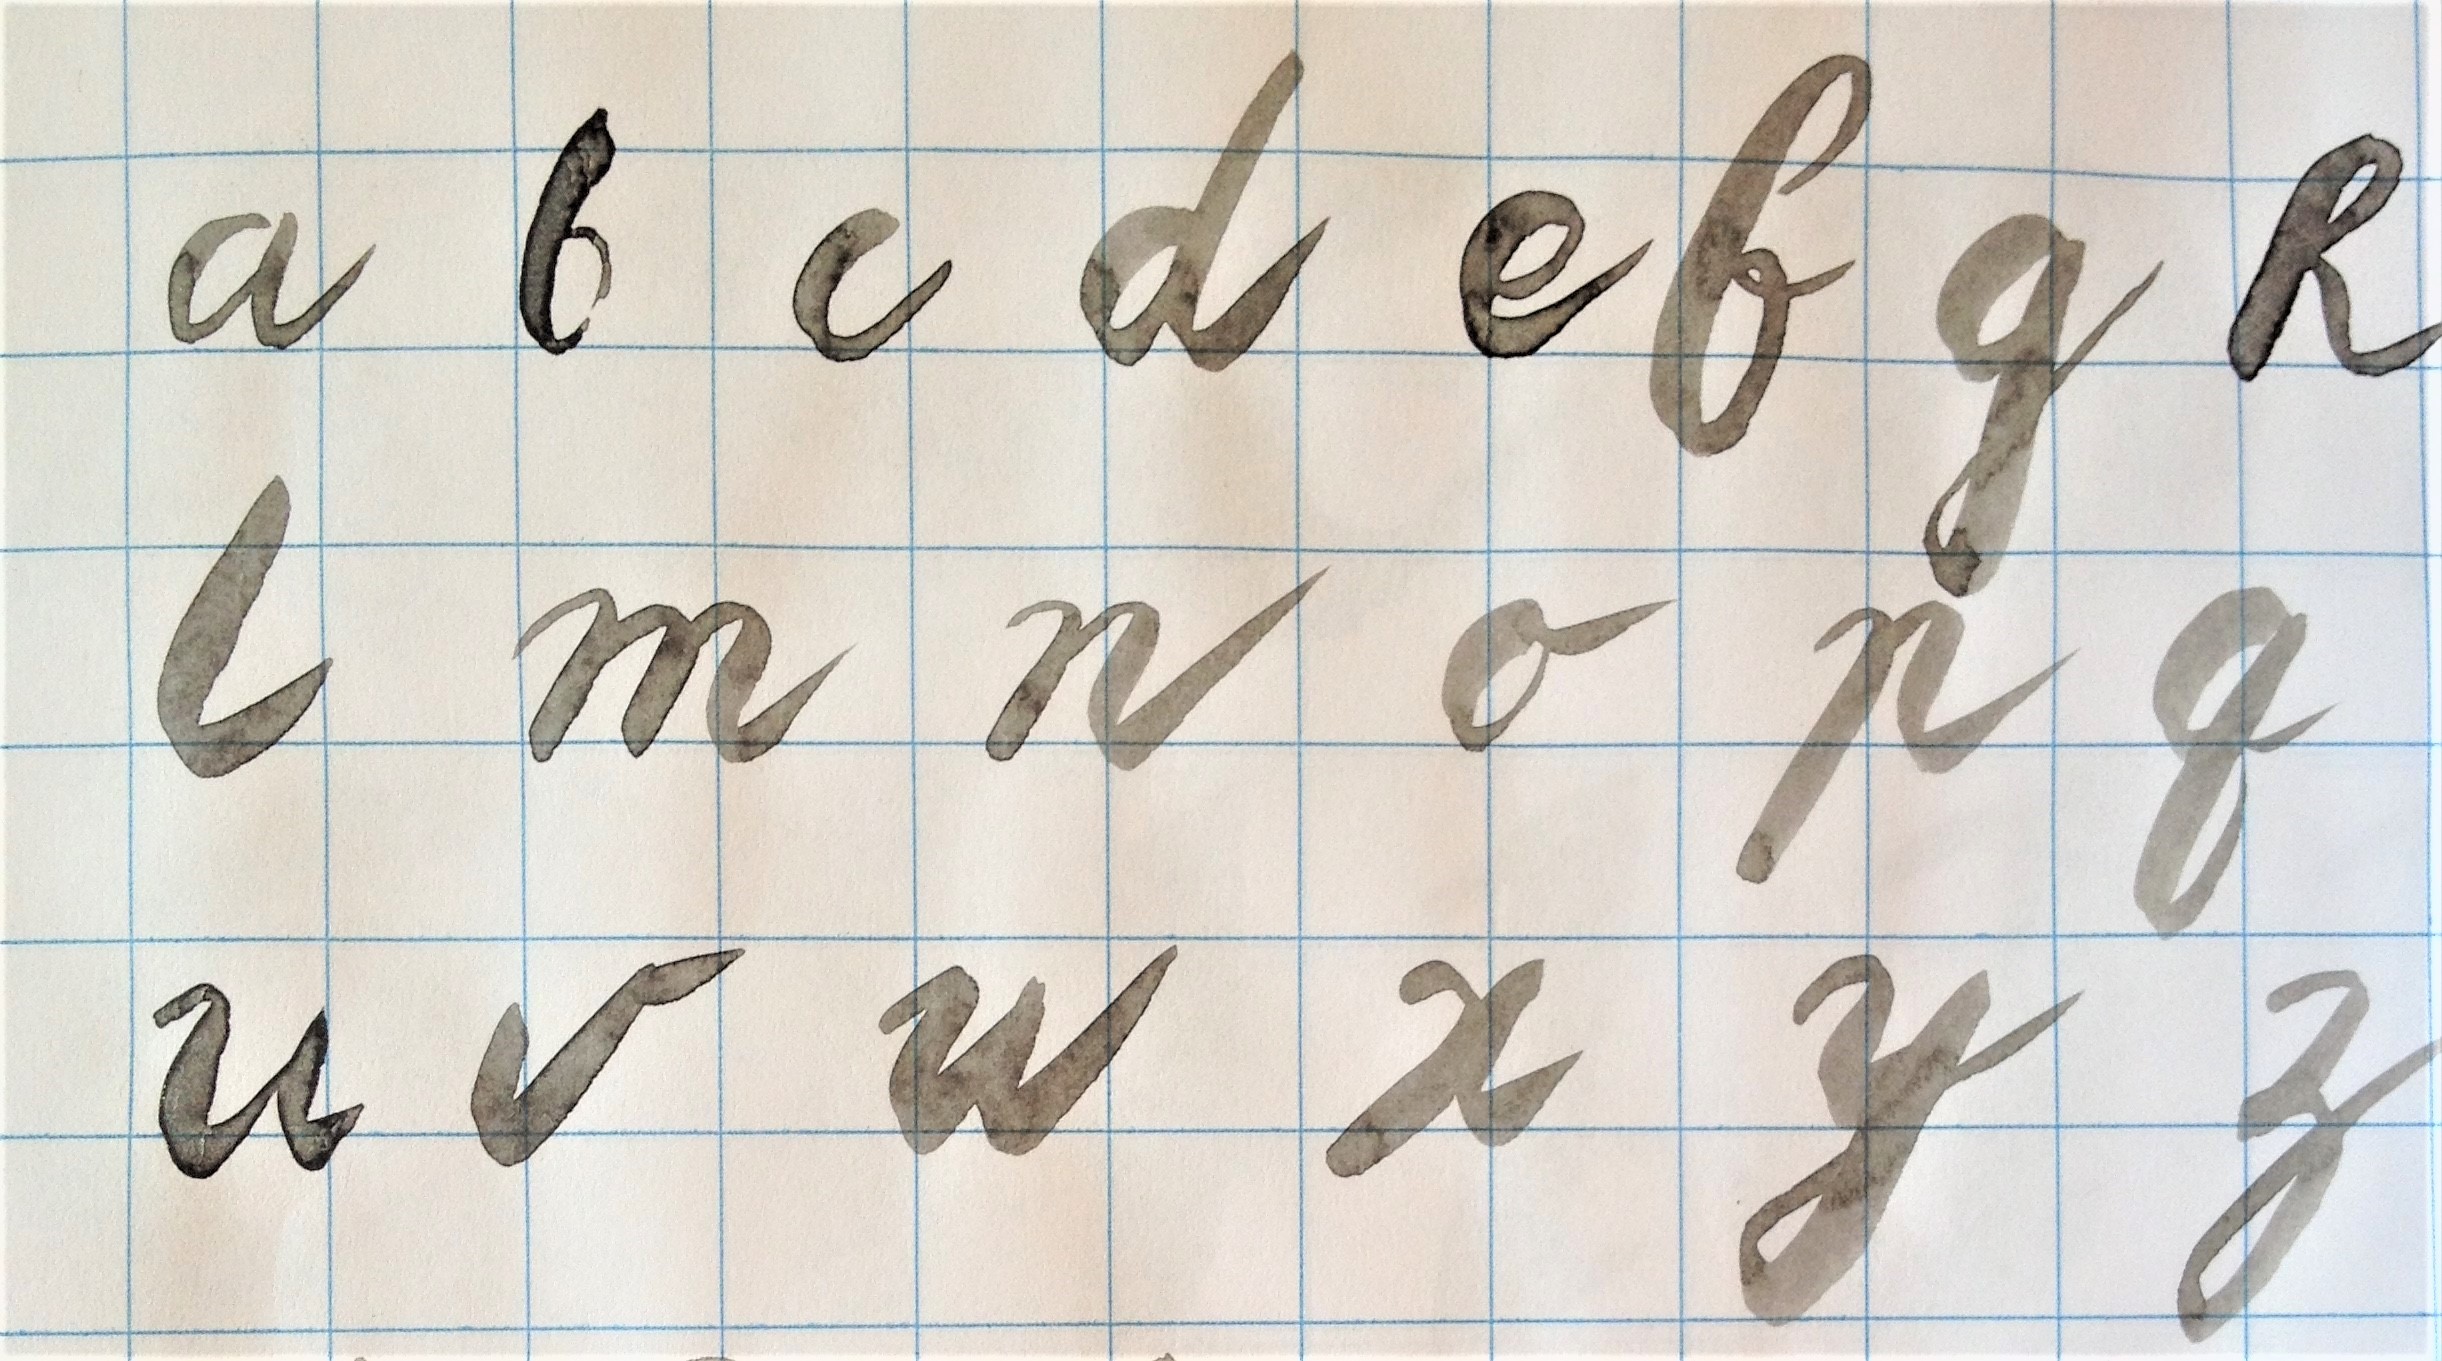 a b c d e f g h
l m n o p q
u v w x y z